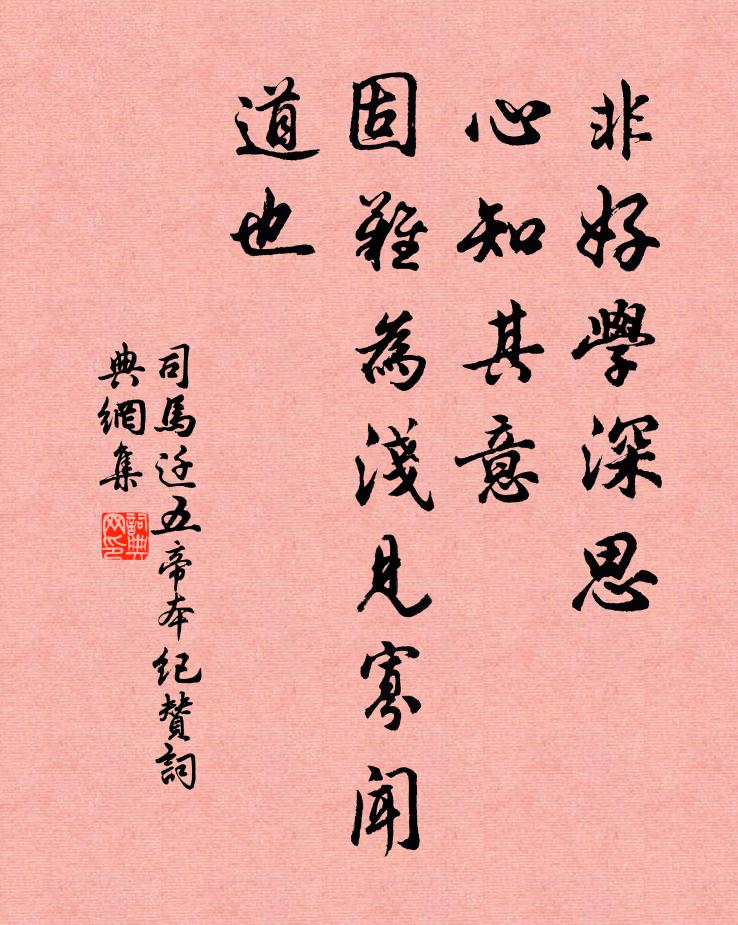 非好學深思
心知其意
固難為淺見寡聞
道也
司馬迁五帝本紀賛詞
典網集
詞典網印